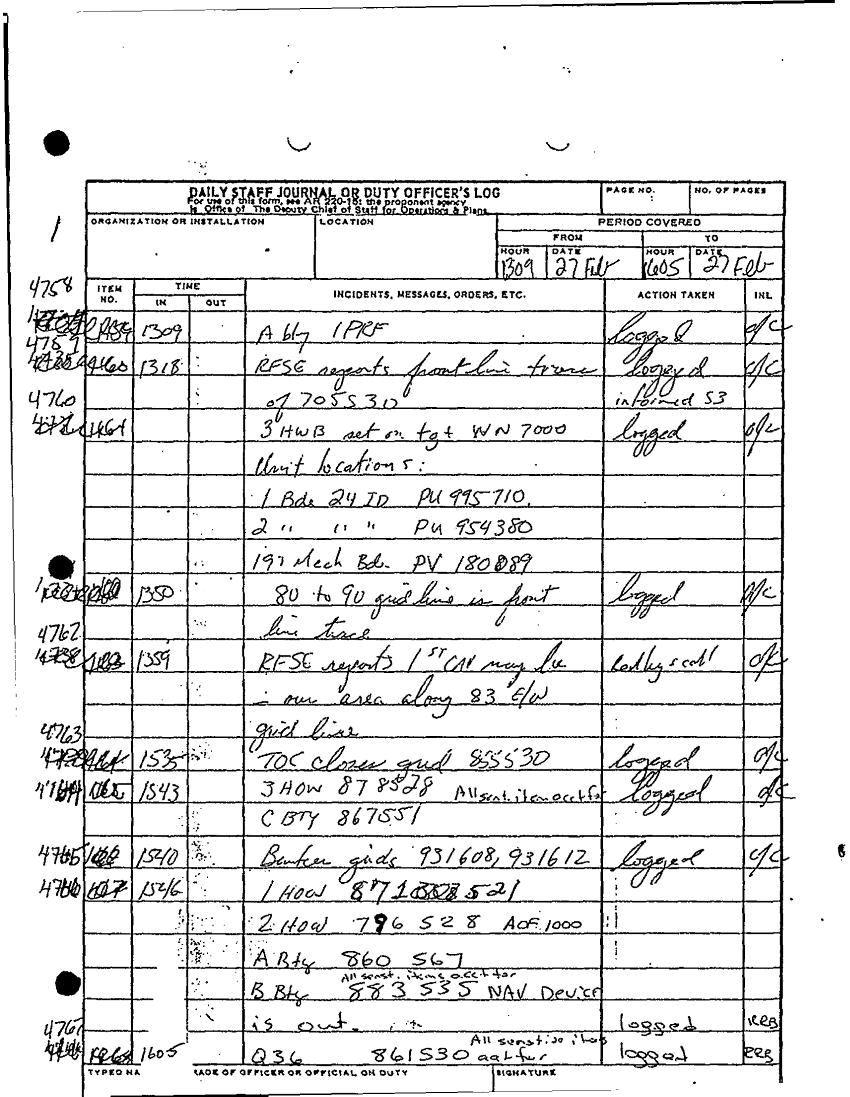 DAILY STAFF JOURNAL OR DUTY OFFICER'S LOG
For use of this form, see AR 220-15; the proponent agency
is Office of The Deputy Chief of Staff for Operations & Plans
PAGE NO.
NO. OF PAGES
1
ORGANIZATION OR INSTALLATION
LOCATION
PERIOD COVERED
FROM
TO
HOUR
DATE
HOUR
DATE
1309
27 Feb
1605
27 Feb
ITEM NO.
TIME
IN
OUT
INCIDENTS, MESSAGES, ORDERS, ETC.
ACTION TAKEN
INL
4758
1309 A bty 1PRF logged
4759
1318 RFSE reports front line trace logged
4760 of 705530 informed S3
3 HWB set on tgt WN 7000 logged
Unit locations:
1 Bde 24 ID PU 995710.
2 " " " PU 954380
197 Mech Bde. PV 180089
1350 80 to 90 grid line is front logged
4762 line trace
1359 RFSE reports 1ST CAV may be
our area along 83 E/W
4763 grid line
1535 TOC closes grid 855530 logged
1543 3 HOW 878528 All sent. item acct for logged
C BTY 867551
4765 1540 Bunker grids 931608, 931612 logged
4766 1546 1 HOW 521
2 HOW 796 528 AOF 1000
A Bty 860 567
All senst. items acct for
B Bty 883 535 NAV Device
4767 is out. logged RRB
All senstive items
1605 Q36 861530 logged RRB
TYPED NA
RADE OF OFFICER OR OFFICIAL ON DUTY
SIGNATURE